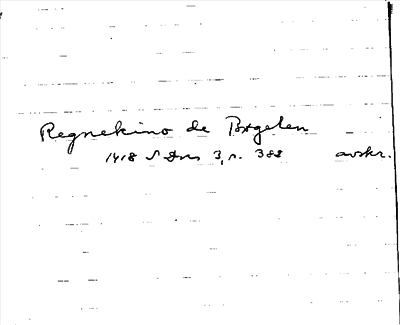 Regnekino de Bregelen
1418 SDns 3, s. 388 avskr.